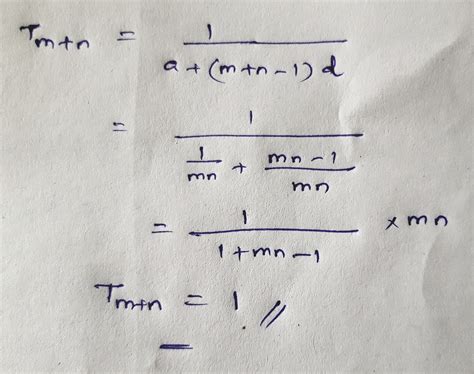 T_{m+n} = \frac{1}{a + (m+n-1) d}
= \frac{1}{\frac{1}{mn} + \frac{mn-1}{mn}}
= \frac{1}{1+mn-1} × mn
T_{m+n} = 1 //